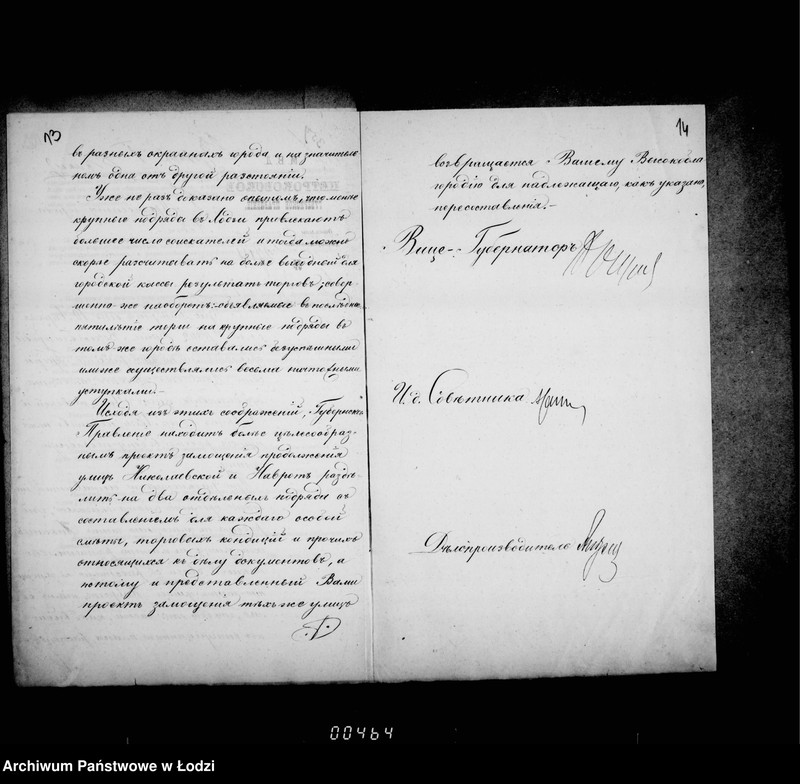 13
въ разныхъ окраинахъ города и на значитель-
номъ одна отъ другой разстояніи.
Уже не разъ доказано опытомъ, что менѣе
крупные подряды въ Лодзи привлекаютъ
большее число соискателей и тогда можно
скорѣе разсчитывать на болѣе выгодный для
городской кассы результатъ торговъ; совер-
шенно-же наоборотъ: объявляемые въ послѣднее
пятилѣтіе торги на крупные подряды въ
томъ же городѣ оставались безуспѣшными
или же осуществлялись весьма
уступками.-
Исходя изъ этихъ соображеній, Губернское
Правленіе находитъ болѣе цѣлесообраз-
нымъ проектъ замощенія продолженія
улицъ Николаевской и Навротъ раздѣ-
лить на два отдѣльныхъ подряда съ
составленіемъ для каждаго особой
смѣты, торговыхъ кондицій и прочихъ
относящихся къ дѣлу документовъ, а
потому и представленный Вами
проектъ замощенія тѣхъ же улицъ
14
возвращается Вашему Высокобла-
городію для надлежащаго, какъ указано,
пересоставленія.-
Вице-Губернаторъ
И. д. Совѣтника
Дѣлопроизводитель
00464
Archiwum Państwowe w Łodzi